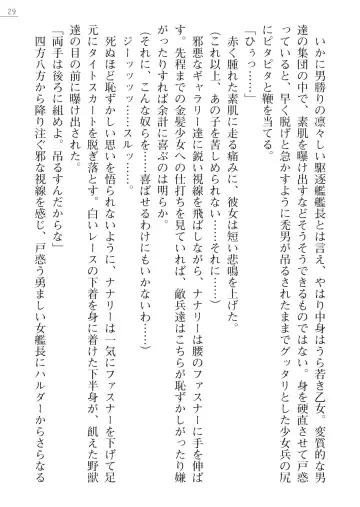 29
いかに男勝りの凛々しい駆逐艦艦長とは言え、やはり中身はうら若き乙女。変質的な男
達の集団の中で、素肌を曝け出すなどそうそうできるものではない。身を硬直させて戸惑
っていると、早く脱げと急かすように禿男が吊るされたままでグッタリとした少女兵の尻
にピタピタと鞭を当てる。
「ひぅっ……」
赤く腫れた素肌に走る痛みに、彼女は短い悲鳴を上げた。
(これ以上、あの子を苦しめられない……くっ……)
邪悪なギャラリー達に鋭い視線を飛ばしながら、ナナリーは腰のファスナーに手を伸ば
す。先程までの金髪少女への仕打ちを見ていても、敵兵達はこちらが恥ずかしがったり嫌
がったりすれば余計に喜ぶのは明らか。
(それに、こんな奴らを……喜ばせるわけにもいかないわ……)
ジーッッッッ……スルッ……。
死ぬほど恥ずかしい思いを悟られないように、ナナリーは一気にファスナーを下げて足
元にタイトスカートを脱ぎ落とす。白いレースの下着を身に着けた下半身が、飢えた野獣
達の目の前に曝け出された。
「両手は後ろに組めよ。吊るすんだからな」
四方八方から降り注ぐ邪な視線を感じ、戸惑う勇ましい女艦長にハルダーからさらなる